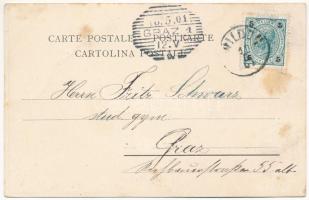 CARTE POSTALE POSTKARTE
CARTOLINA POSTALE
16.5.01
GRAZ 1
12.V
Herrn Fritz Schwarz
stud. gym.
Graz
55